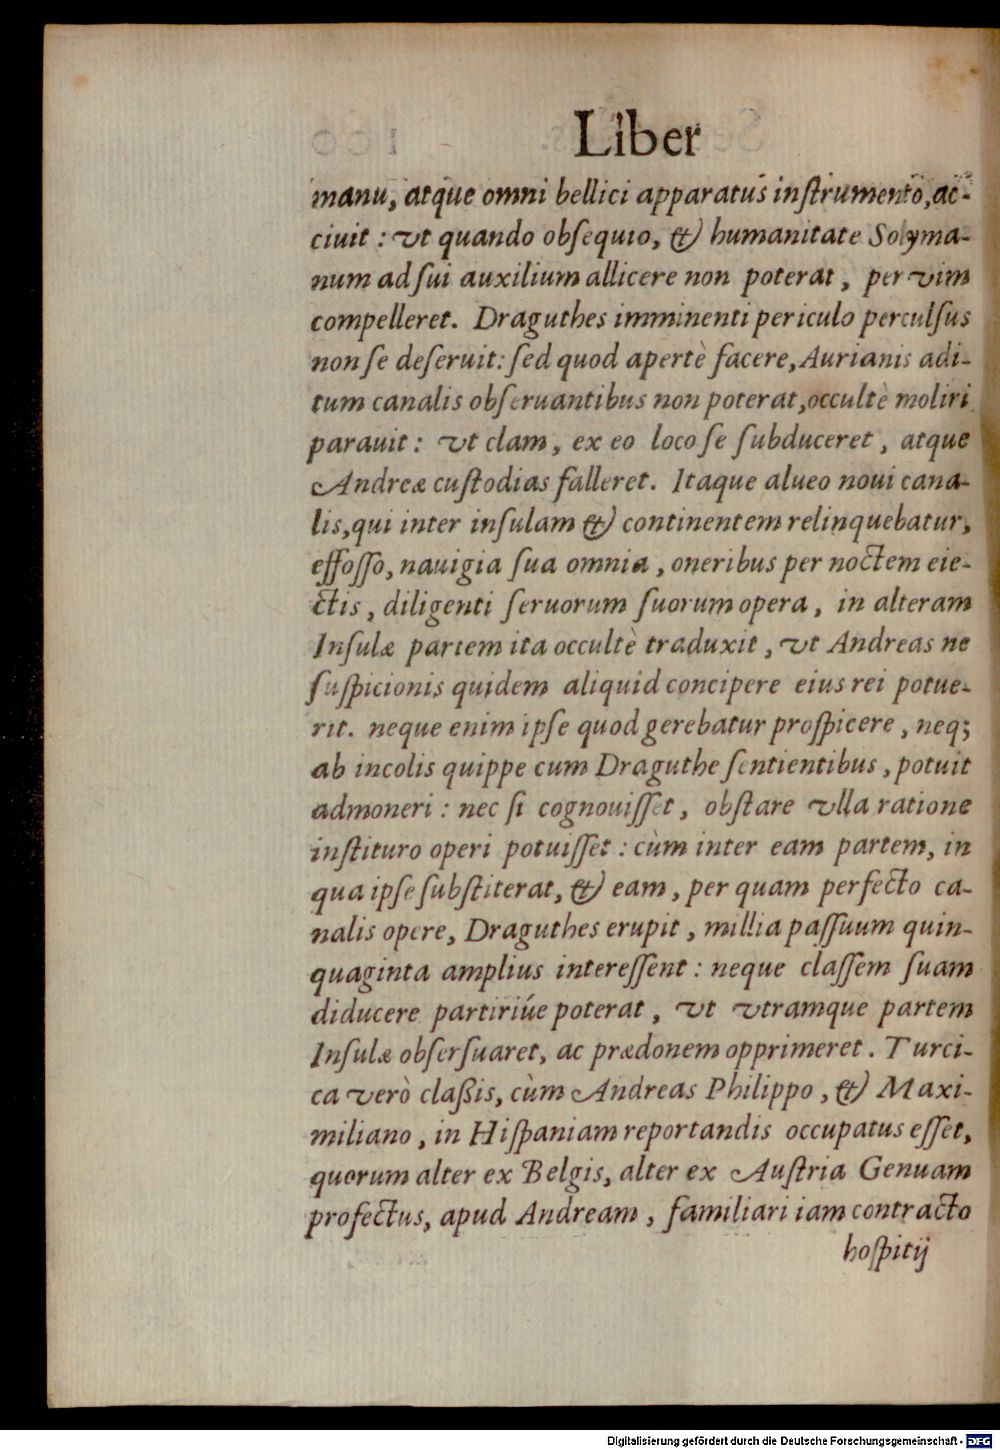 Liber
manu, atque omni bellici apparatus inſtrumento, ac-
ciuit: vt quando obſequio, & humanitate Solyma-
num ad ſui auxilium allicere non poterat, per vim
compelleret. Draguthes imminenti periculo perculſus
non ſe deſeruit: ſed quod apertè facere, Aurianis adi-
tum canalis obſeruantibus non poterat, occultè moliri
parauit: vt clam, ex eo loco ſe ſubduceret, atque
Andreæ cuſtodias falleret. Itaque alueo noui cana-
lis, qui inter inſulam & continentem relinquebatur,
effoſſo, nauigia ſua omnia, oneribus per noctem eie-
ctis, diligenti ſeruorum ſuorum opera, in alteram
Inſulæ partem ita occultè traduxit, vt Andreas ne
ſuſpicionis quidem aliquid concipere eius rei potue-
rit. neque enim ipſe quod gerebatur proſpicere, neq;
ab incolis quippe cum Draguthe ſentientibus, potuit
admoneri: nec ſi cognouiſſet, obſtare vlla ratione
inſtituro operi potuiſſet: cùm inter eam partem, in
qua ipſe ſubſtiterat, & eam, per quam perfecto ca-
nalis opere, Draguthes erupit, millia paſſuum quin-
quaginta amplius intereſſent: neque claſſem ſuam
diducere partiriúe poterat, vt vtramque partem
Inſulæ obſerſuaret, ac prædonem opprimeret. Turci-
ca verò claßis, cùm Andreas Philippo, & Maxi-
miliano, in Hiſpaniam reportandis occupatus eſſet,
quorum alter ex Belgis, alter ex Auſtria Genuam
profectus, apud Andream, familiari iam contracto
hoſpitij
Digitalisierung gefördert durch die Deutsche Forschungsgemeinschaft - DFG